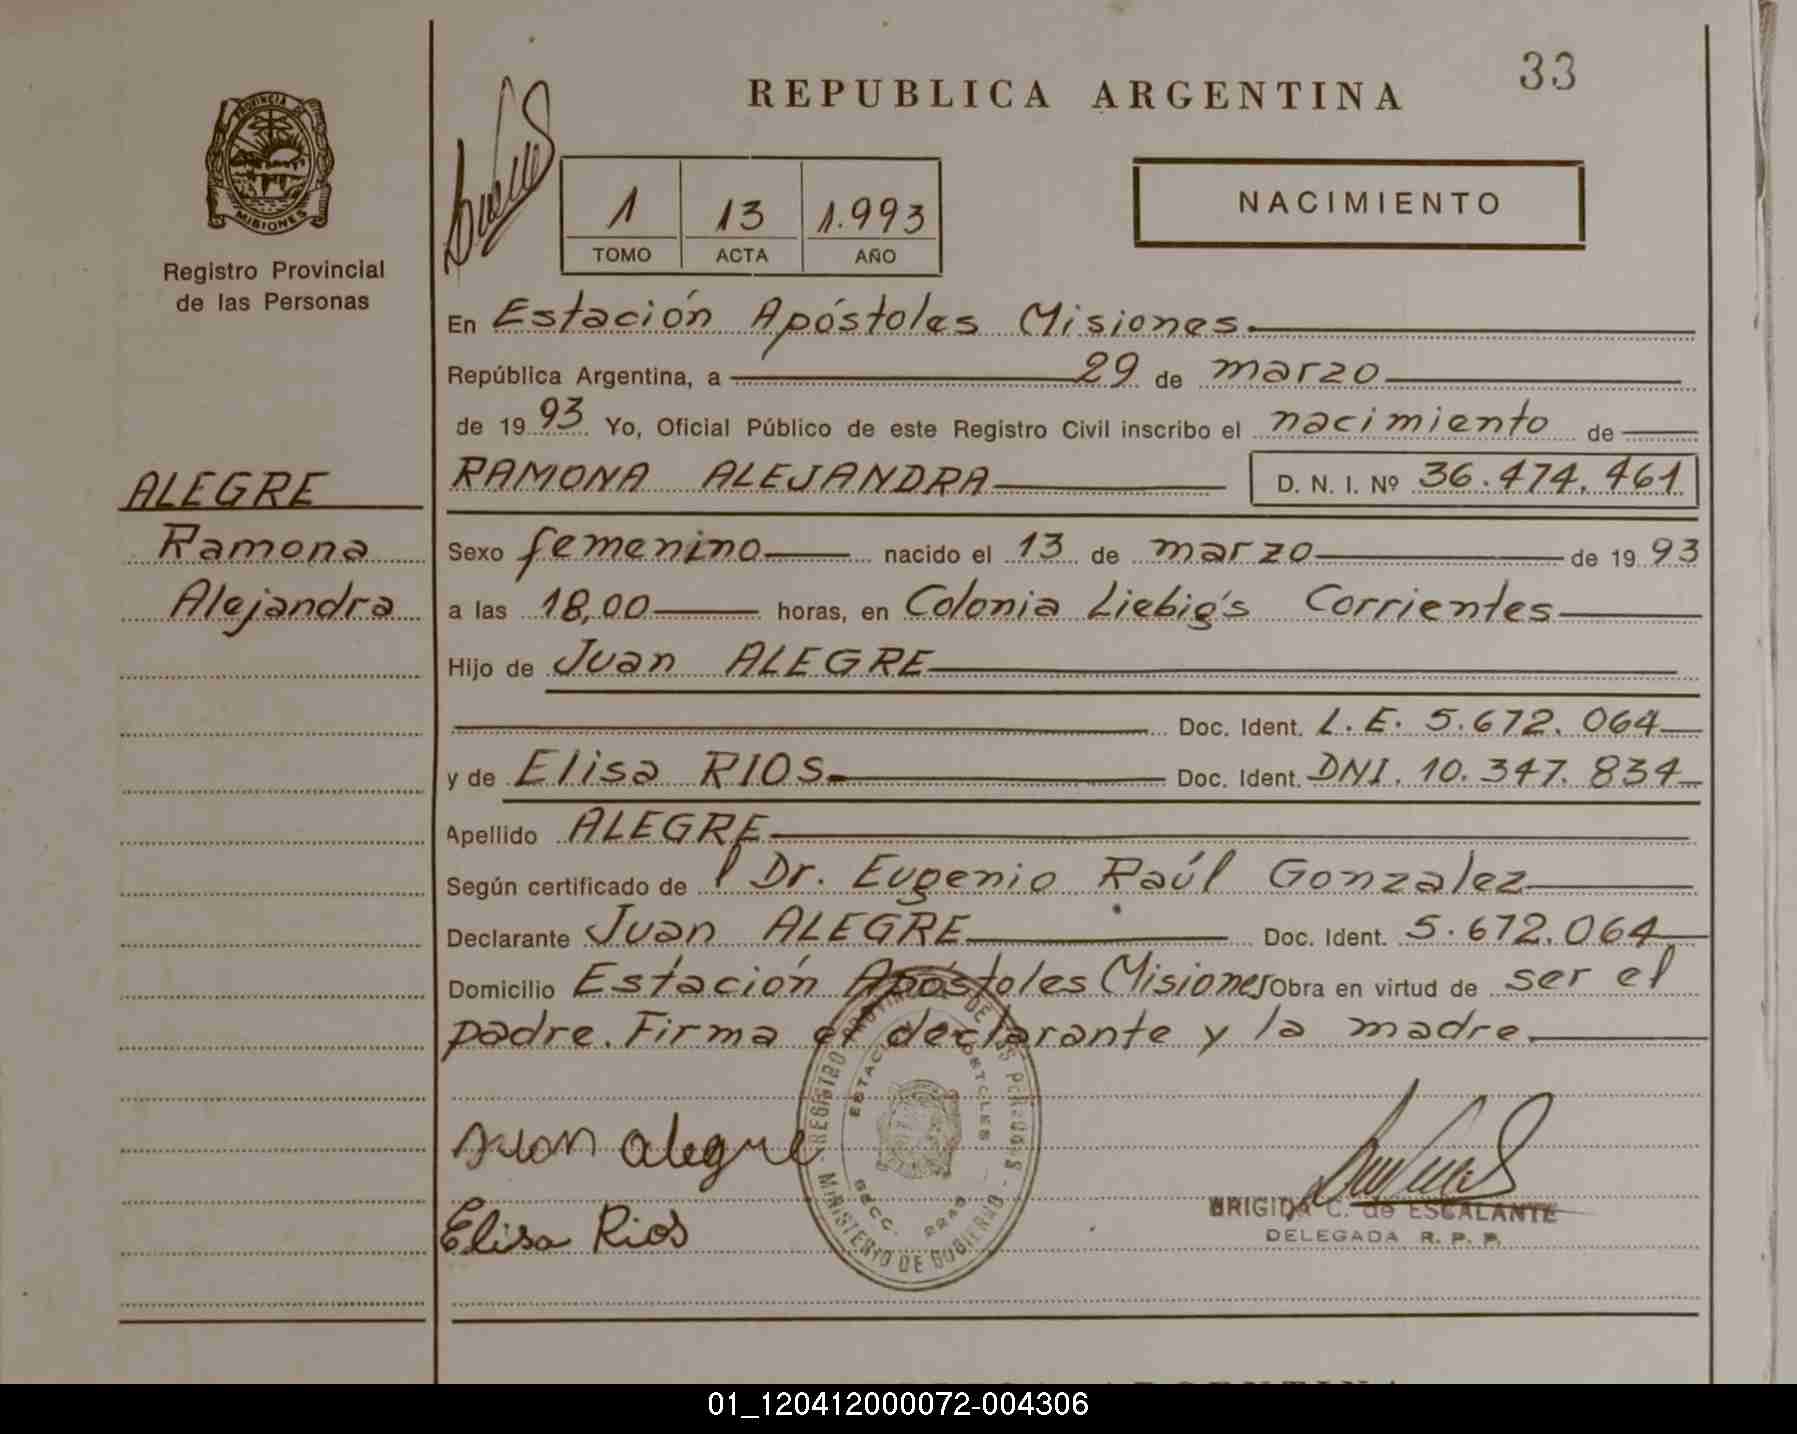 33
REPUBLICA ARGENTINA
PROVINCIA
MISIONES
Registro Provincial
de las Personas
1 13 1.993
TOMO ACTA AÑO
NACIMIENTO
En Estación Apóstoles Misiones.
República Argentina, a 29 de marzo
de 1993 Yo, Oficial Público de este Registro Civil inscribo el nacimiento de
ALEGRE
Ramona
Alejandra
RAMONA ALEJANDRA D. N. I. Nº 36.474.461
Sexo femenino nacido el 13 de marzo de 1993
a las 18,00 horas, en Colonia Liebig's Corrientes
Hijo de Juan ALEGRE
Doc. Ident. L.E. 5.672.064
y de Elisa RIOS. Doc. Ident. DNI. 10.347.834
Apellido ALEGRE
Según certificado de l Dr. Eugenio Raúl Gonzalez
Declarante Juan ALEGRE Doc. Ident. 5.672.064
Domicilio Estación Apóstoles Misiones Obra en virtud de ser el
padre. Firma el declarante y la madre.
Juan alegre
Elisa Rios
REGISTRO PROVINCIAL DE LAS PERSONAS - MINISTERIO DE GOBIERNO -
ESTACION APOSTOLES
SECC.
BRIGIDA C. de ESCALANTE
DELEGADA R. P. P.
01_120412000072-004306